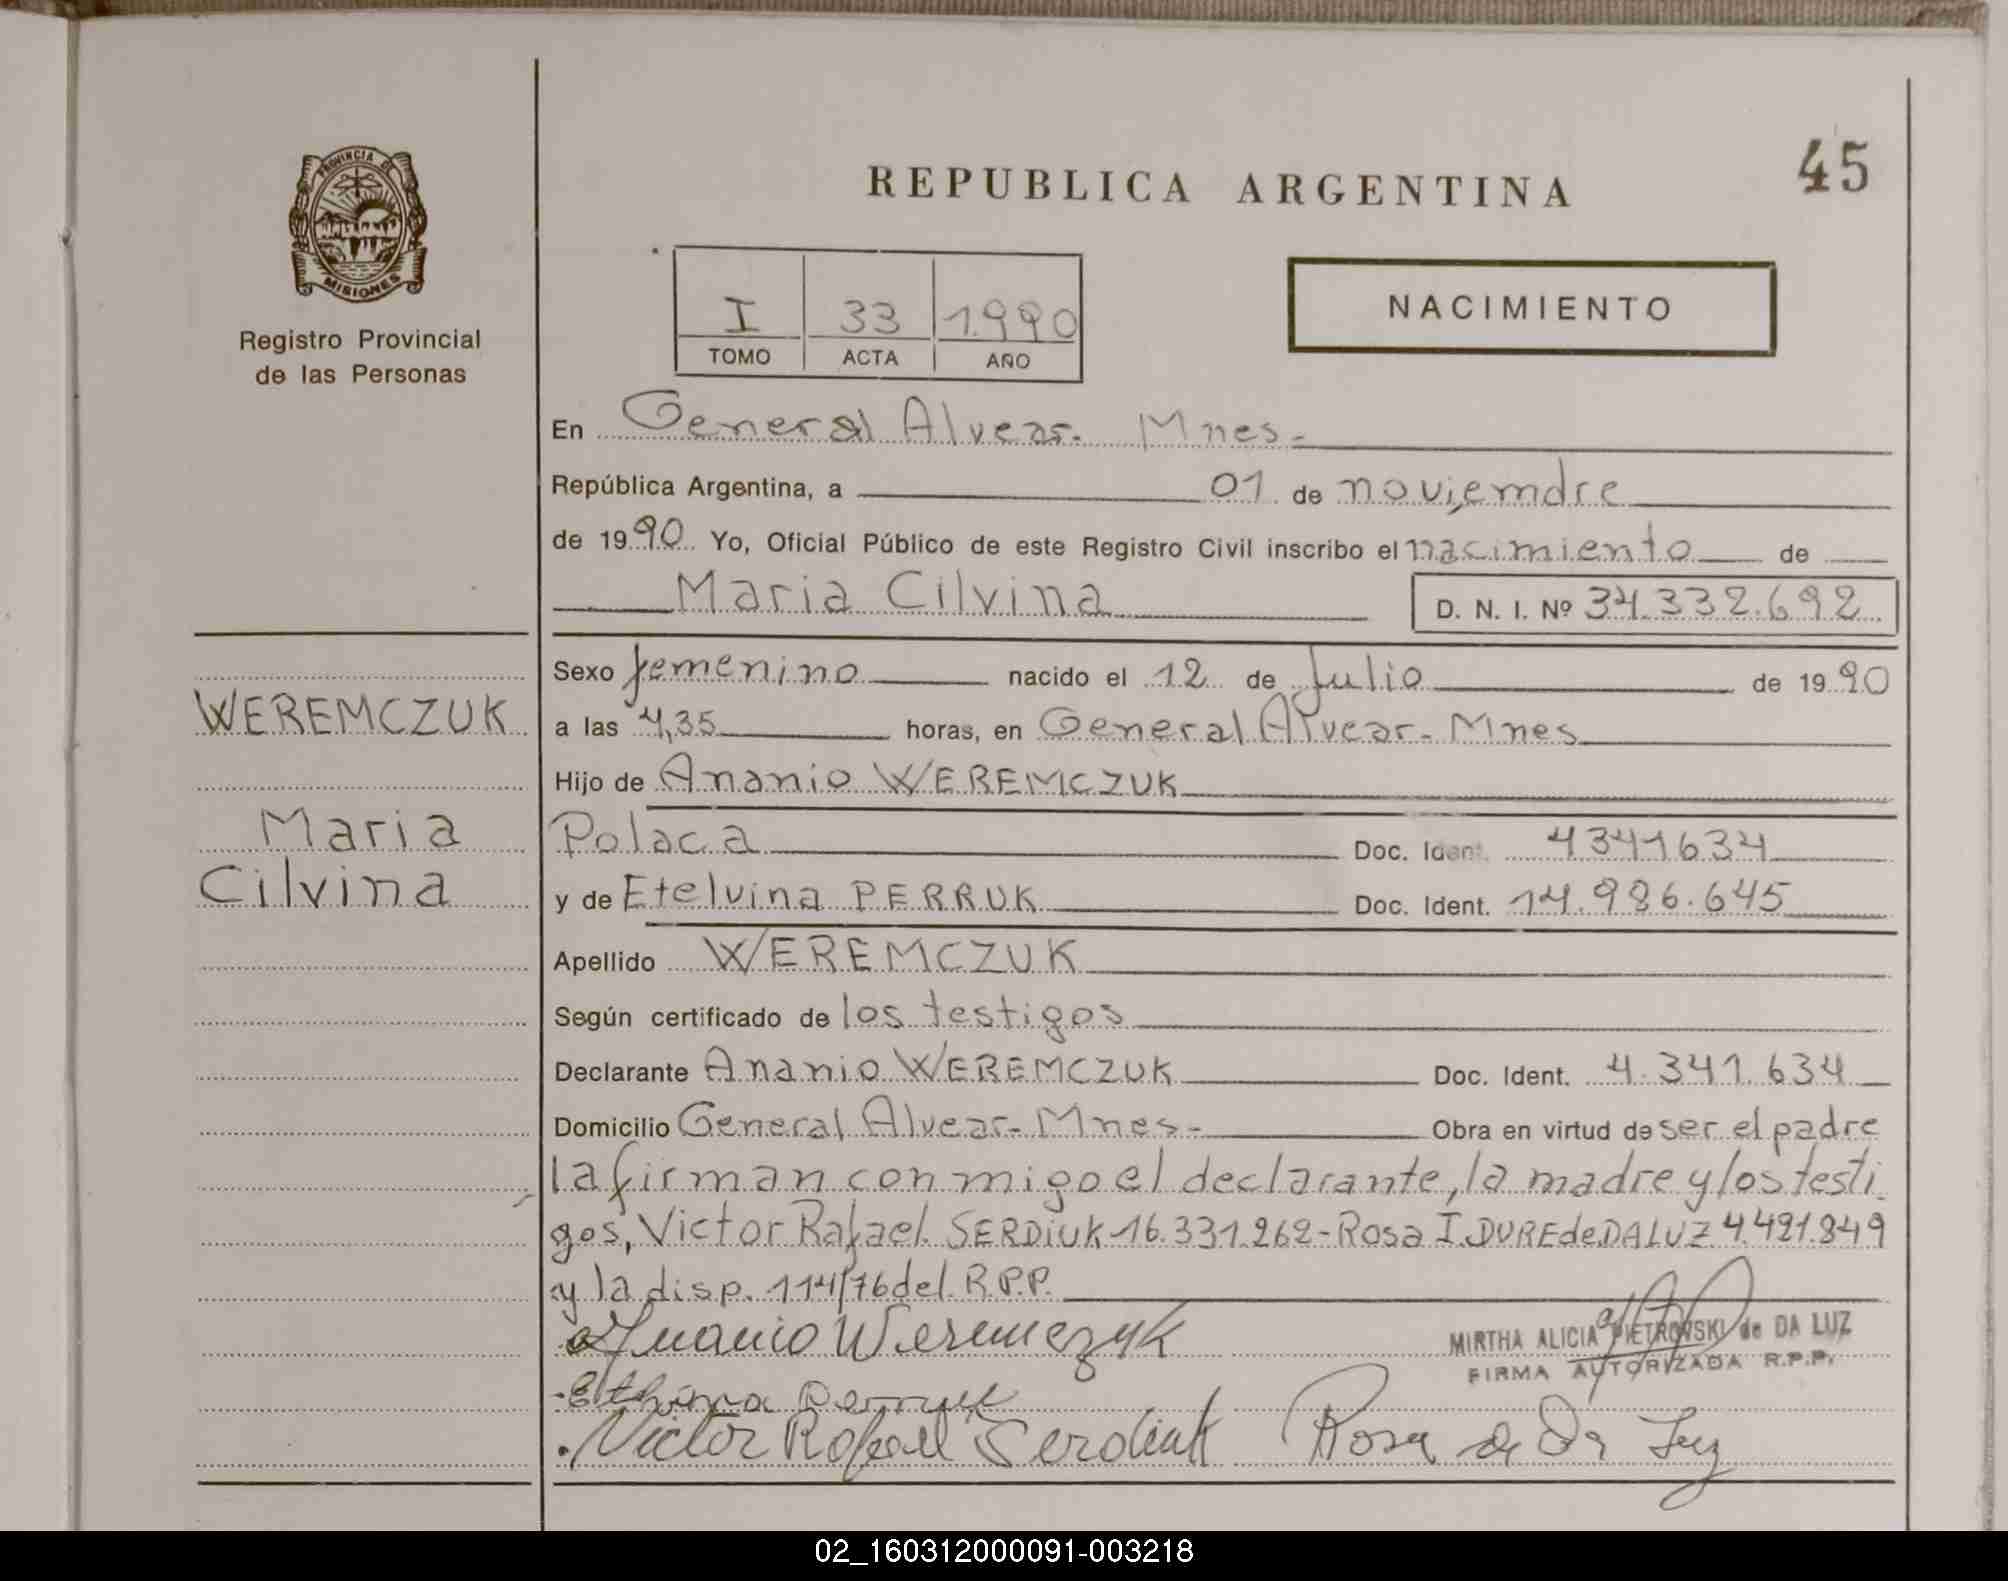 45
REPUBLICA ARGENTINA
PROVINCIA DE
MISIONES
Registro Provincial
de las Personas
I 33 1.990
TOMO ACTA AÑO
NACIMIENTO
En General Alvear. Mnes-
República Argentina, a 01 de noviemdre
de 1990 Yo, Oficial Público de este Registro Civil inscribo el nacimiento de
Maria Cilvina D. N. I. Nº 34.332.692
Sexo femenino nacido el 12 de Julio de 1990
WEREMCZUK
a las 4,35 horas, en General Alvear- Mnes
Hijo de Ananio WEREMCZUK
Maria
Polaca Doc. Ident. 4341634
Cilvina
y de Etelvina PERRUK Doc. Ident. 14.986.645
Apellido WEREMCZUK
Según certificado de los testigos
Declarante Ananio WEREMCZUK Doc. Ident. 4.341.634
Domicilio General Alvear- Mnes- Obra en virtud de ser el padre
la firman con migo el declarante, la madre y los testi
gos, Victor Rafael SERDIUK 16.331.262- Rosa I. DURE de DA LUZ 4.421.849
y la disp. 114/76 del R.P.P.
Ananio Weremczuk
MIRTHA ALICIA PIETROWSKI de DA LUZ
FIRMA AUTORIZADA R.P.P.
Perruk
Victor Rafael Serdiuk Rosa de Da Luz
02_160312000091-003218